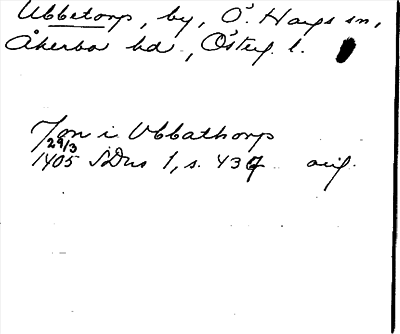 Ubbetorp, by, Ö. Hargs sn,
Åkerbo hd, Österg. l.
Jon i Ubbathorp
29/3
1405 SDns 1, s. 439 orig.